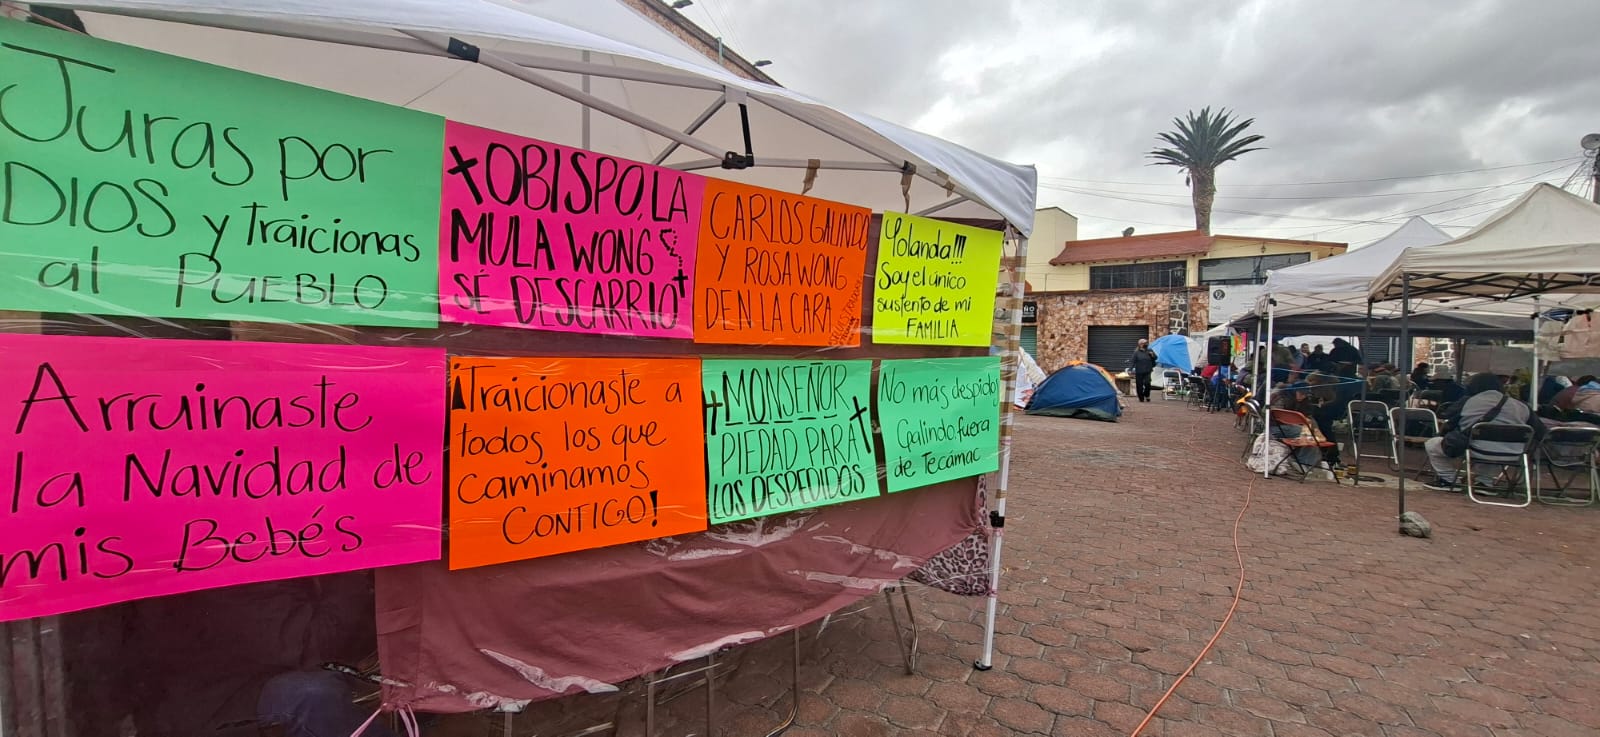 Juras por
DIOS y traicionas
al PUEBLO
OBISPO, LA
MULA WONG
SÉ DESCARRIO
CARLOS GALINDO
Y ROSA WONG
DEN LA CARA
Yolanda!!!
Soy el único
sustento de mi
FAMILIA
Arruinaste
la Navidad de
mis Bebés
¡Traicionaste a
todos los que
caminamos
CONTIGO!
MONSEÑOR
PIEDAD PARA
LOS DESPEDIDOS
No más despidos
Galindo fuera
de Tecámac